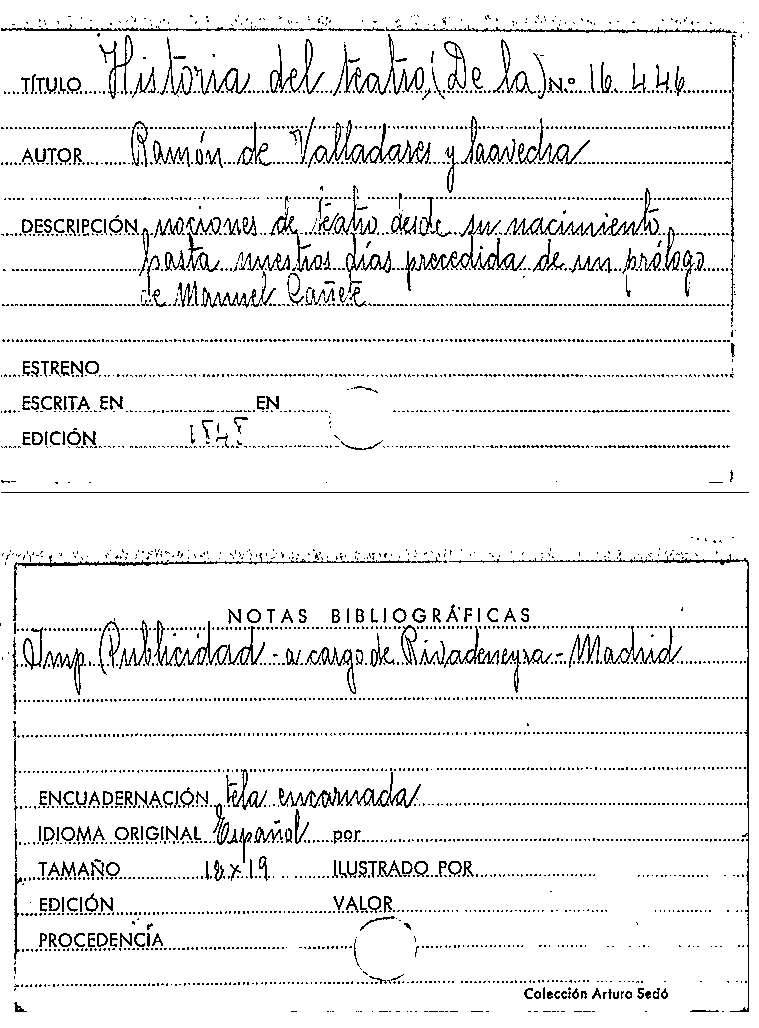 TÍTULO Historia del teatro, (De la) N.º 16.446
AUTOR Ramón de Valladares y Saavedra
DESCRIPCIÓN nociones de teatro desde su nacimiento
hasta nuestros días precedida de un prólogo
de Manuel Cañete
ESTRENO
ESCRITA EN EN
EDICIÓN 1848
NOTAS BIBLIOGRÁFICAS
Imp. Publicidad - a cargo de Rivadeneyra - Madrid
ENCUADERNACIÓN tela encarnada
IDIOMA ORIGINAL Español por
TAMAÑO 12 x 19 ILUSTRADO POR
EDICIÓN VALOR
PROCEDENCIA
Colección Arturo Sedó